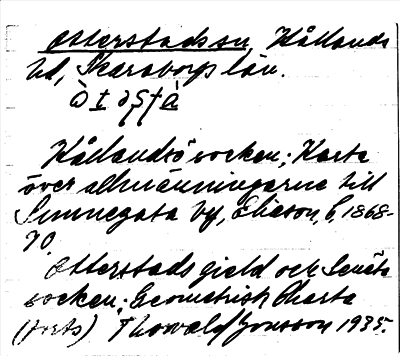 Otterstads sn, Kållands
hd, Skaraborgs län.
Kållandsö socken; Karta
över allmänningarne till
by, Elieson, C, 1868-
70.
Otterstads gield och
socken; Geometrisk Charta
(forts) Thorwald Jonsson 1935.